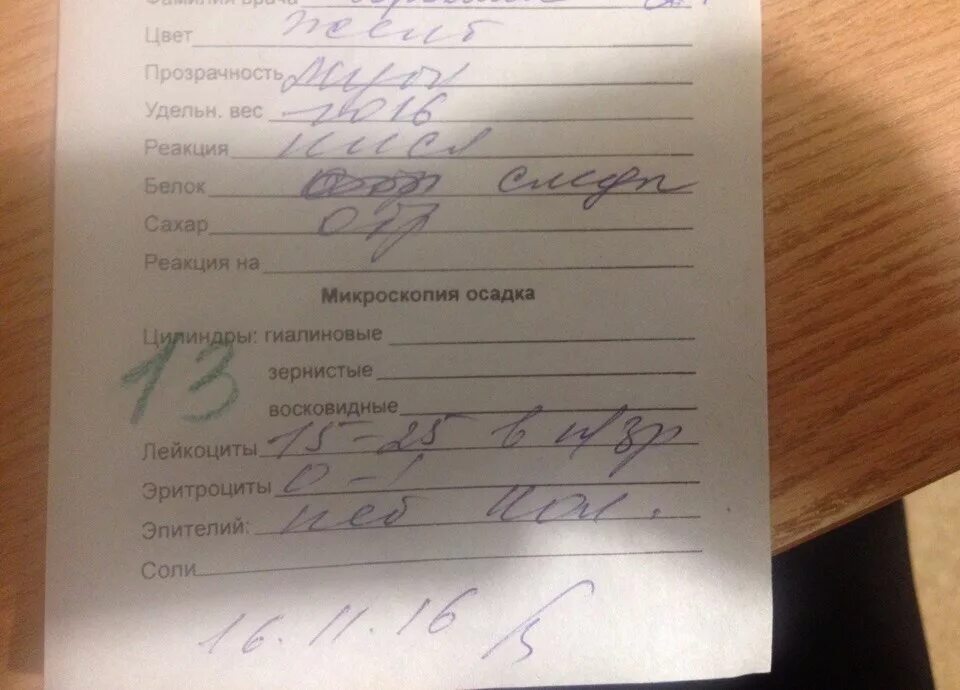 Фамилия врача
Цвет желт
Прозрачность мутн
Удельн. вес 1016
Реакция кисл
Белок следы
Сахар отр
Реакция на
Микроскопия осадка
Цилиндры: гиалиновые
13
зернистые
восковидные
Лейкоциты 15-25 в п/зр
Эритроциты 0-1
Эпителий: неб кол.
Соли
16.11.16